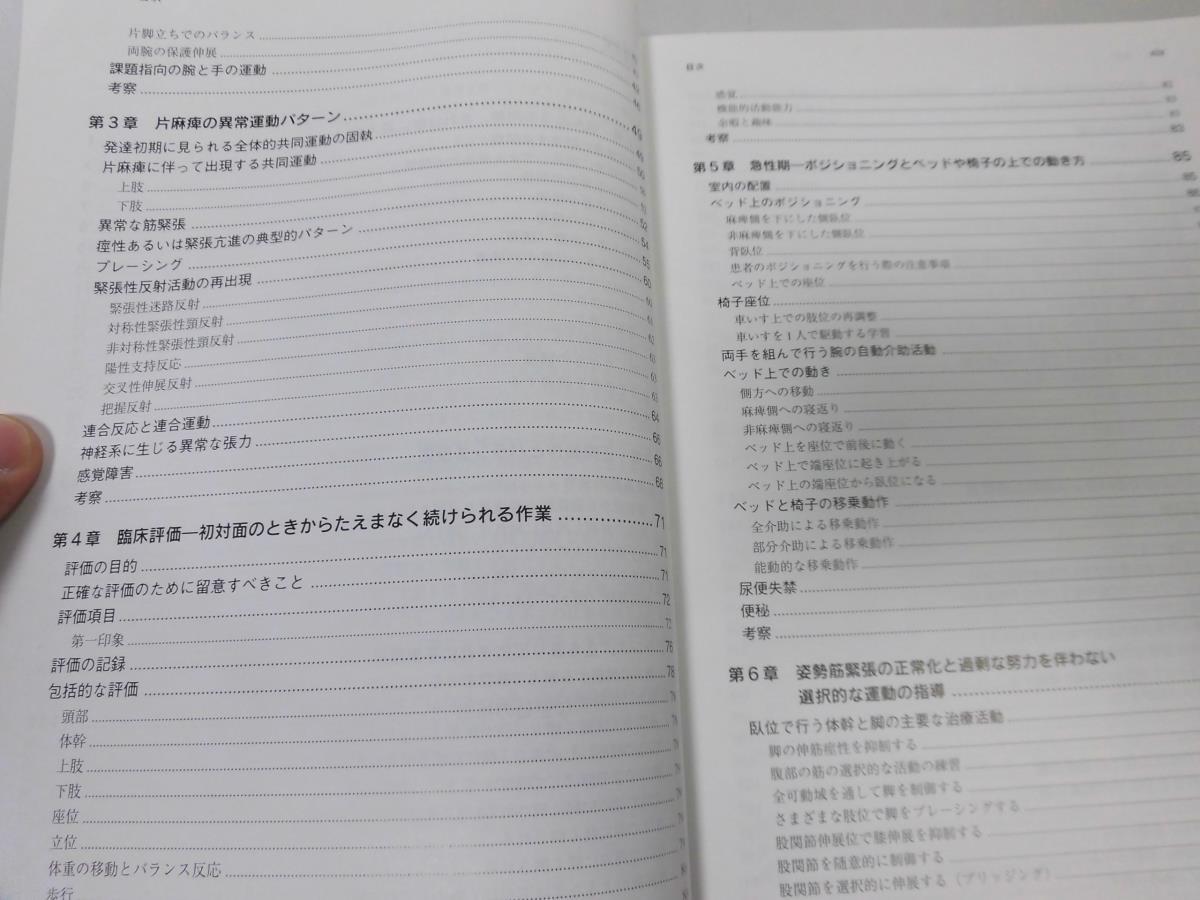 片脚立ちでのバランス
両腕の保護伸展
課題指向の腕と手の運動 42
考察 46
第3章 片麻痺の異常運動パターン 49
発達初期に見られる全体的共同運動の固執 49
片麻痺に伴って出現する共同運動 50
上肢
下肢 51
異常な筋緊張 52
痙性あるいは緊張亢進の典型的パターン 54
プレーシング 55
緊張性反射活動の再出現 60
緊張性迷路反射 60
対称性緊張性頸反射 61
非対称性緊張性頸反射 62
陽性支持反応 63
交叉性伸展反射 63
把握反射 63
連合反応と連合運動 64
神経系に生じる異常な張力 66
感覚障害 66
考察 68
第4章 臨床評価―初対面のときからたえまなく続けられる作業 71
評価の目的 71
正確な評価のために留意すべきこと 71
評価項目 72
第一印象 72
評価の記録 76
包括的な評価 78
頭部 79
体幹 79
上肢 79
下肢 79
座位 79
立位 79
体重の移動とバランス反応
歩行
目次
感覚
機能的活動能力
余暇と趣味
考察 83
第5章 急性期―ポジショニングとベッドや椅子の上での動き方 85
室内の配置 85
ベッド上のポジショニング
麻痺側を下にした側臥位
非麻痺側を下にした側臥位
背臥位
患者のポジショニングを行う際の注意事項
ベッド上での座位
椅子座位
車いす上での肢位の再調整
車いすを1人で駆動する学習
両手を組んで行う腕の自動介助活動
ベッド上での動き
側方への移動
麻痺側への寝返り
非麻痺側への寝返り
ベッド上を座位で前後に動く
ベッド上で端座位に起き上がる
ベッド上の端座位から臥位になる
ベッドと椅子の移乗動作
全介助による移乗動作
部分介助による移乗動作
能動的な移乗動作
尿便失禁
便秘
考察
第6章 姿勢筋緊張の正常化と過剰な努力を伴わない
選択的な運動の指導
臥位で行う体幹と脚の主要な治療活動
脚の伸筋痙性を抑制する
腹部の筋の選択的な活動の練習
全可動域を通して脚を制御する
さまざまな肢位で脚をプレーシングする
股関節伸展位で膝伸展を抑制する
股関節を随意的に制御する
股関節を選択的に伸展する（ブリッジング）